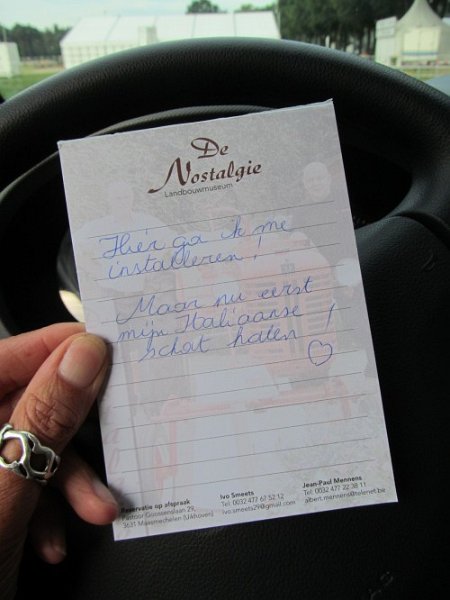 De
Nostalgie
Landbouwmuseum
Hier ga ik me
installeren!
Maar nu eerst
mijn Italiaanse
schat halen !
♡
Reservatie op afspraak
Pastoor Goossenslaan 29,
3631 Maasmechelen (Uikhoven)
Ivo Smeets
Tel. 0032 477 67 52 12
ivo.smeets29@gmail.com
Jean-Paul Mennens
Tel: 0032 477 22 38 11
albert.mennens@telenet.be